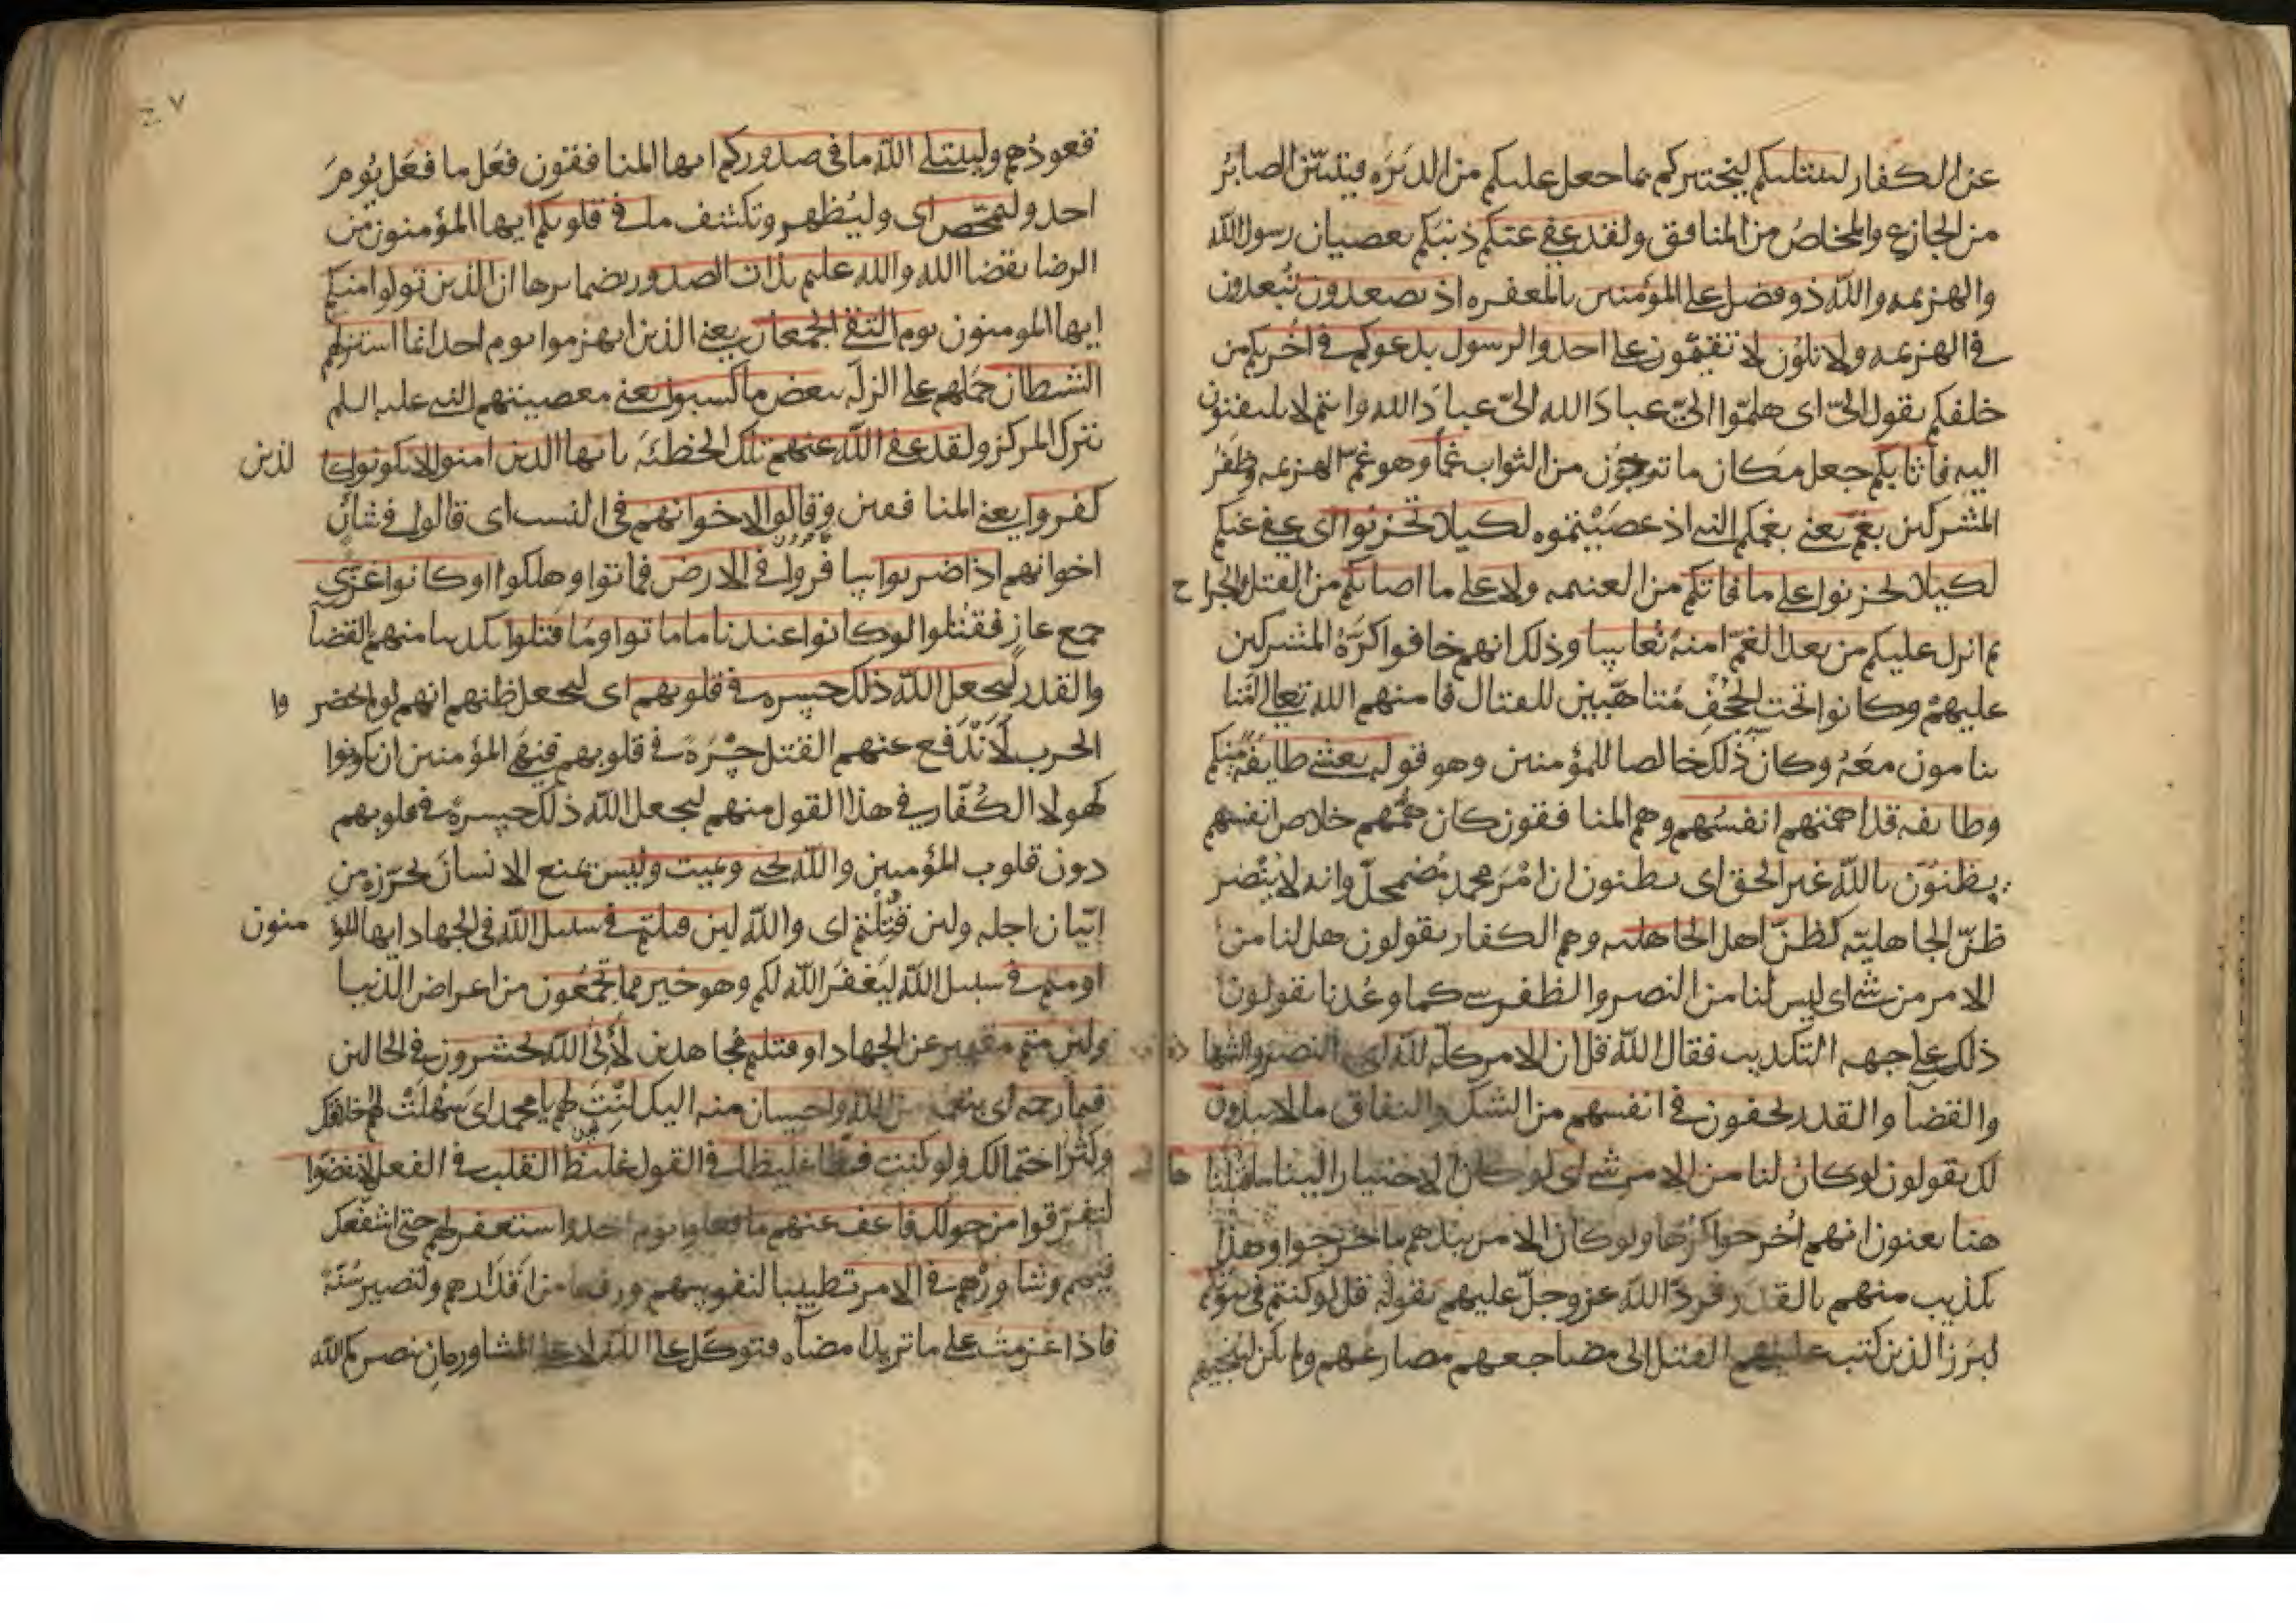 عن الكفار ليبتليكم ليختبركم بما جعل عليكم من الدبره فيتبين الصابر
من الجازع والمخلص من المنافق ولقد عفى عنكم ذنبكم بعصيان رسول الله
والهزيمه والله ذو فضل على المؤمنين بالمغفره اذ تصعدون تبعدون
في الهزيمه ولا تلون لا تقيمون على احد والرسول يدعوكم في اخريكم من
خلفكم يقول الىّ اى هلموا الىّ عباد الله الىّ عباد الله وانتم لا تلتفتون
اليه فاثابكم جعل مكان ما ترجون من الثواب غما وهو غم الهزيمه وظفر
المشركين بغم يعنى بغمكم النبى اذ عصيتموه لكيلا تحزنوا اى عفى عنكم
لكيلا تحزنوا على ما فاتكم من الغنيمه ولا على ما اصابكم من القتل والجراح
ثم انزل عليكم من بعد الغم امنة نعاسا وذلك انهم خافوا كرة المشركين
عليهم وكانوا تحت الحجف متاهبين للقتال فامنهم الله تعالى امنا
ينامون معه وكان ذلك خالصا للمؤمنين وهو قوله يغشى طايفة منكم
وطايفه قد اهمتهم انفسهم وهم المنافقون كان همهم خلاص انفسهم
يظنون بالله غير الحق اى يظنون ان امر محمد مضمحل وانه لا ينصر
ظن الجاهليه كظن اهل الجاهليه وهم الكفار يقولون هل لنا من
الامر من شى اى ليس لنا من النصر والظفر شى كما وعدنا يقولون
ذلك على جهه التكذيب فقال الله قل ان الامر كله لله اى النصر والشهاده
والقضا والقدر يخفون في انفسهم من الشك والنفاق ما لا يبدون
لك يقولون لو كان لنا من الامر شى اى لو كان الاختيار الينا ما قتلنا هاهنا
هنا يعنون انهم اخرجوا كرها ولو كان الامر بيدهم ما خرجوا وهذا
تكذيب منهم بالقدر فرد الله عز وجل عليهم بقوله قل لو كنتم فى بيوتكم
لبرز الذين كتب عليهم القتل الى مضاجعهم مصارعهم ولم يكن لينجيهم
٤٧
قعودهم وليبتلى الله ما فى صدوركم ايها المنافقون فعل ما فعل يوم
احد وليمحص اى وليظهر وتكشف ما فى قلوبكم ايها المؤمنون من
الرضا بقضا الله والله عليم بذات الصدور بضمايرها ان الذين تولوا منكم
ايها المومنون يوم التقى الجمعان يعنى الذين انهزموا يوم احد انما استزلهم
الشيطان حملهم على الزله ببعض ما كسبوا يعنى معصيتهم النبى عليه السلم
بترك المركز ولقد عفى الله عنهم تلك الخطئه يا ايها الذين امنوا لا تكونوا كالذين
كفروا يعنى المنافقين وقالوا لاخوانهم فى النسب اى قالوا فى شان
اخوانهم اذا ضربوا سافروا فى الارض فماتوا وهلكوا او كانوا غزى
جمع غاز فقتلوا لو كانوا عندنا ما ماتوا وما قتلوا تكذيبا منهم بالقضا
والقدر ليجعل الله ذلك حسرة فى قلوبهم اى ليجعل ظنهم انهم لو لم يحضروا
الحرب لاندفع عنهم القتل حسرة فى قلوبهم فنهى المؤمنين ان يكونوا
كهولا الكفار فى هذا القول منهم ليجعل الله ذلك حسرة فى قلوبهم
دون قلوب المؤمنين والله يحيى ويميت وليس يمنع الانسان تحرزه من
اتيان اجله ولين قتلتم اى والله لين قتلتم فى سبيل الله فى الجهاد ايها المؤمنون
او متم فى سبيل الله ليغفر الله لكم وهو خير مما تجمعون من اعراض الدنيا
ولين متم مقيمين عن الجهاد او قتلتم مجاهدين لالى الله تحشرون فى الحالين
فبما رحمه اى بنعمه من الله واحسان منه اليك لنت لهم يا محمد اى سهلت لهم اخلاقك
وكثر احتمالك ولو كنت فظا غليظا فى القول غليظ القلب فى الفعل لانفضوا
لتفرقوا من حولك فاعف عنهم ما فعلوا يوم احد واستغفر لهم حتى اشفعك
فيهم وشاورهم فى الامر تطييبا لنفوسهم ورفعا من اقدارهم ولتصير سنة
فاذا عزمت على ما تريد امضاه فتوكل على الله لا على المشاوره ان ينصركم الله